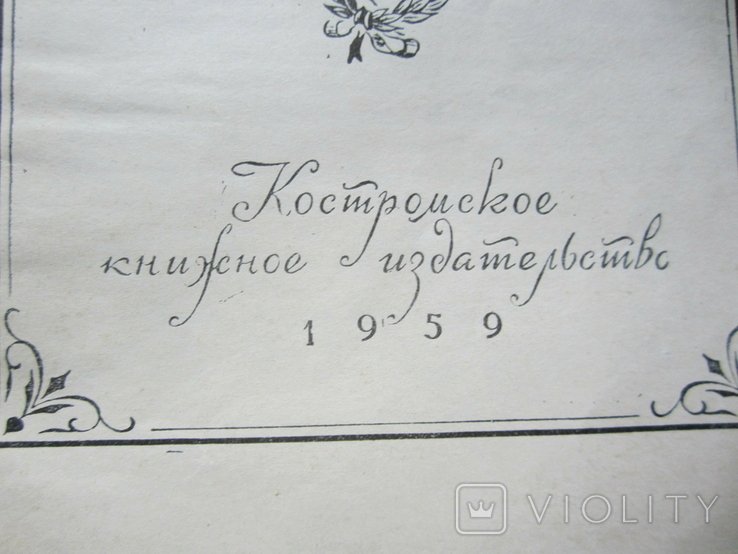 Костромское
книжное издательство
1959
VIOLITY